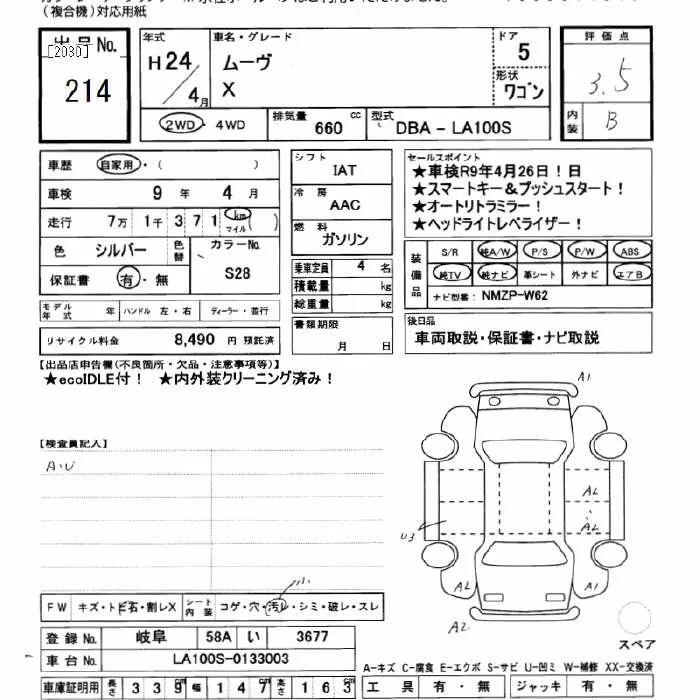 （複合機）対応用紙
出品No.
［2030］
214
年式
H24/4月
車名・グレード
ムーヴ
X
ドア
5
形状
ワゴン
評価点
3.5
内装
B
2WD・4WD
排気量 660 cc
型式 DBA - LA100S
車歴 自家用・（ ）
車検 9年 4月
走行 7万 1千 3 7 1 km マイル
色 シルバー 色替 カラーNo.
S28
保証書 有・無
モデル年式 年 ハンドル 左・右 ディーラー・並行
リサイクル料金 8,490 円 預託済
シフト
IAT
冷房
AAC
燃料
ガソリン
乗車定員 4 名
積載量 kg
総重量 kg
書類期限
月 日
セールスポイント
★車検R9年4月26日！日
★スマートキー＆プッシュスタート！
★オートリトラミラー！
★ヘッドライトレベライザー！
装備品
S/R 純A/W P/S P/W ABS
純TV 純ナビ 革シート 外ナビ エアB
ナビ型番： NMZP-W62
後日品
車両取説・保証書・ナビ取説
【出品店申告欄(不良箇所・欠品・注意事項等)】
★ecoIDLE付！ ★内外装クリーニング済み！
【検査員記入】
A・U
A1
AL
AL
U3
A2
A1
A2
FW キズ・トビ石・割レX シート内装 コゲ・穴・汚レ・シミ・破レ・スレ
小
登録No. 岐阜 58A い 3677
車台No. LA100S-0133003
車庫証明用 長さ 339cm 幅 147cm 高さ 163cm
スペア
A-キズ C-腐食 E-エクボ S-サビ U-凹ミ W-補修 XX-交換済
工具 有・無 ジャッキ 有・無